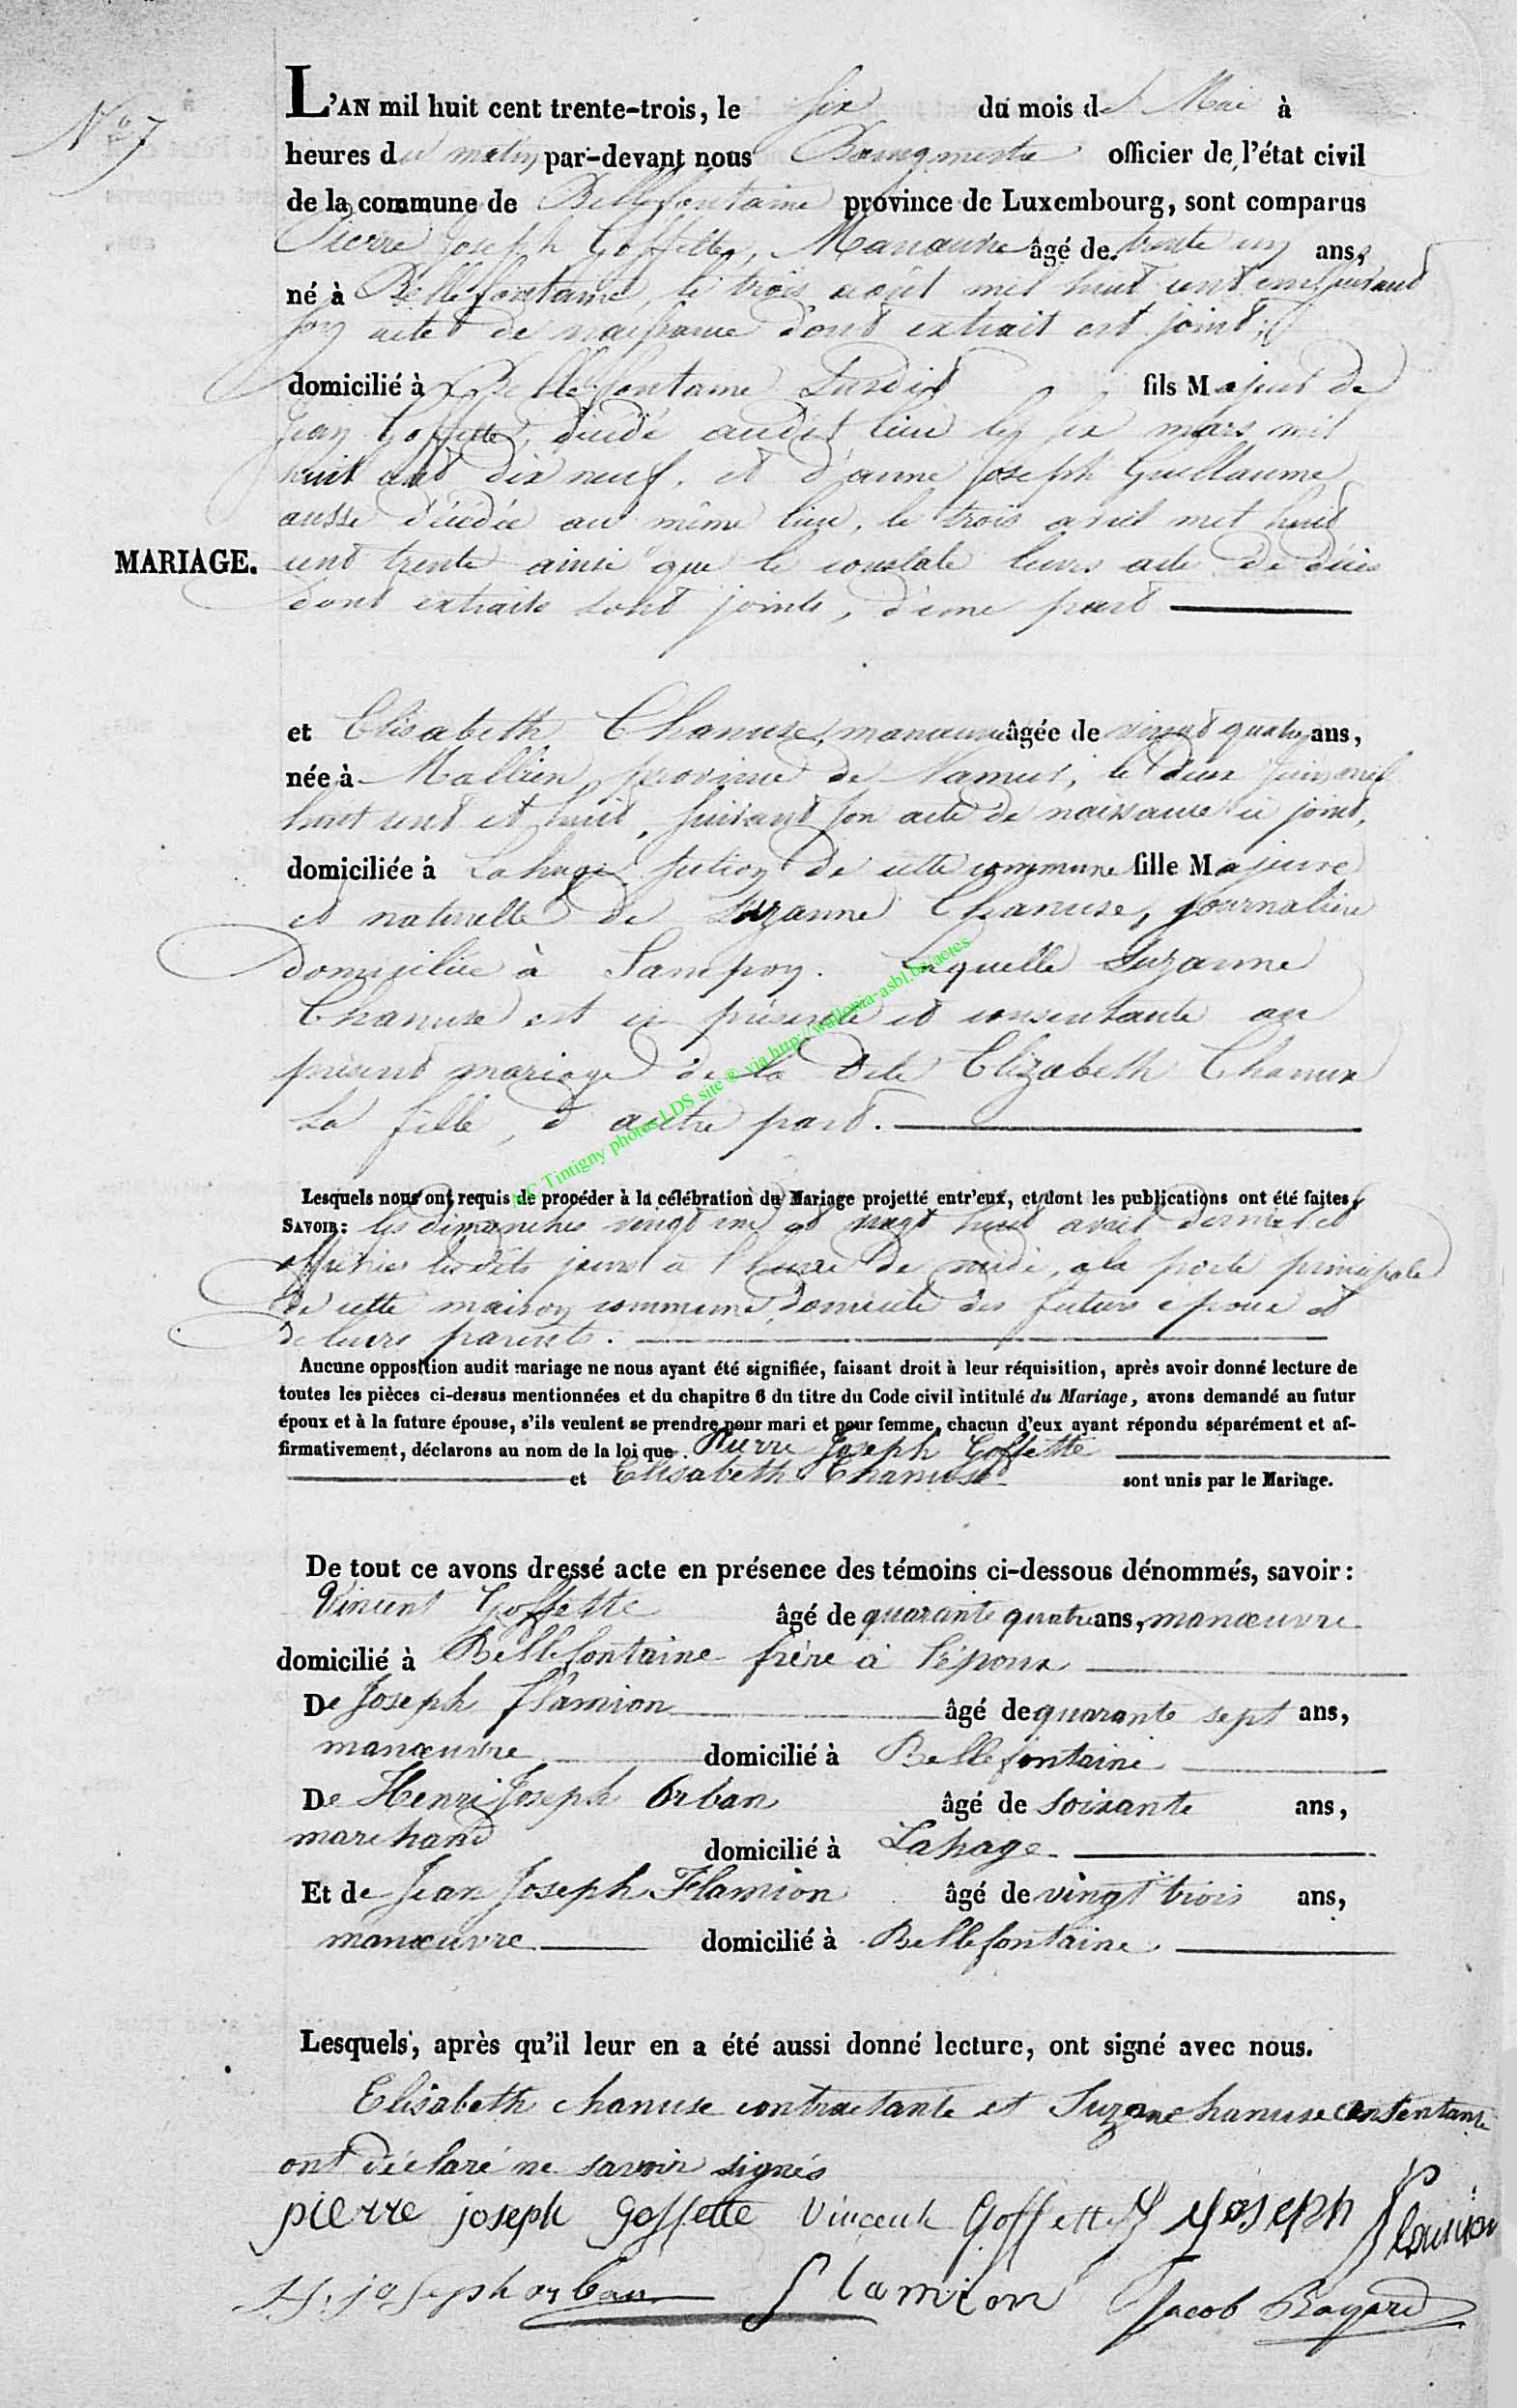 N° 7
L'AN mil huit cent trente-trois, le six du mois de Mai à
heures du matin par-devant nous Bourgmestre officier de l'état civil
de la commune de Bellefontaine province de Luxembourg, sont comparus
Pierre Joseph Goffette, Manœuvre âgé de trente un ans,
né à Bellefontaine, le trois août mil huit cent un suivant
son acte de naissance dont extrait est joint,
domicilié à Bellefontaine susdit fils Majeur de
Jean Goffette, décédé audit lieu le six mars mil
huit cent dix neuf, et d'anne Joseph Guillaume
aussi décédée au même lieu, le trois avril mil huit
MARIAGE.
cent trente ainsi que le constate leurs acte de décès
dont extraits sont joints, d'une part
et Elisabeth Chanuse, manœuvre âgée de vingt quatre ans,
née à Mallien province de Namur, le deux juin mil
huit cent et huit, suivant son acte de naissance ci joint,
domiciliée à Lahage section de cette commune fille Majeure
et naturelle de Suzanne Chanuse, journalière
domiciliée à Sampon. Laquelle Suzanne
Chanuse est ci présente et consentante au
présent mariage de la dite Elizabeth Chanuse
sa fille, d'autre part.
A.C Tintigny photos LDS site ® via http://wallonia-asbl.be/actes
Lesquels nous ont requis de procéder à la célébration du Mariage projetté entr'eux, et dont les publications ont été faites,
SAVOIR: les dimanches vingt un et vingt huit avril dernier et
affichées lesdits jours à l'heure de midi, a la porte principale
de cette maison commune, domicile des futurs epoux et
de leurs parents.
Aucune opposition audit mariage ne nous ayant été signifiée, faisant droit à leur réquisition, après avoir donné lecture de
toutes les pièces ci-dessus mentionnées et du chapitre 6 du titre du Code civil intitulé du Mariage, avons demandé au futur
époux et à la future épouse, s'ils veulent se prendre pour mari et pour femme, chacun d'eux ayant répondu séparément et af-
firmativement, déclarons au nom de la loi que Pierre Joseph Goffette
et Elisabeth Chanuse sont unis par le Mariage.
De tout ce avons dressé acte en présence des témoins ci-dessous dénommés, savoir:
Vincent Goffette âgé de quarante quatre ans, manœuvre
domicilié à Bellefontaine frère à l'époux
De Joseph flamion âgé de quarante sept ans,
manœuvre domicilié à Bellefontaine
De Henri Joseph Orban âgé de soixante ans,
marchand domicilié à Lahage
Et de Jean Joseph Flamion âgé de vingt trois ans,
manœuvre domicilié à Bellefontaine
Lesquels, après qu'il leur en a été aussi donné lecture, ont signé avec nous.
Elisabeth chanuse contractante et Suzane chanuse consentante
ont déclaré ne savoir signés
pierre joseph goffette Vincent Goffette joseph flamion
H. joseph orban flamion Jacob Bayard